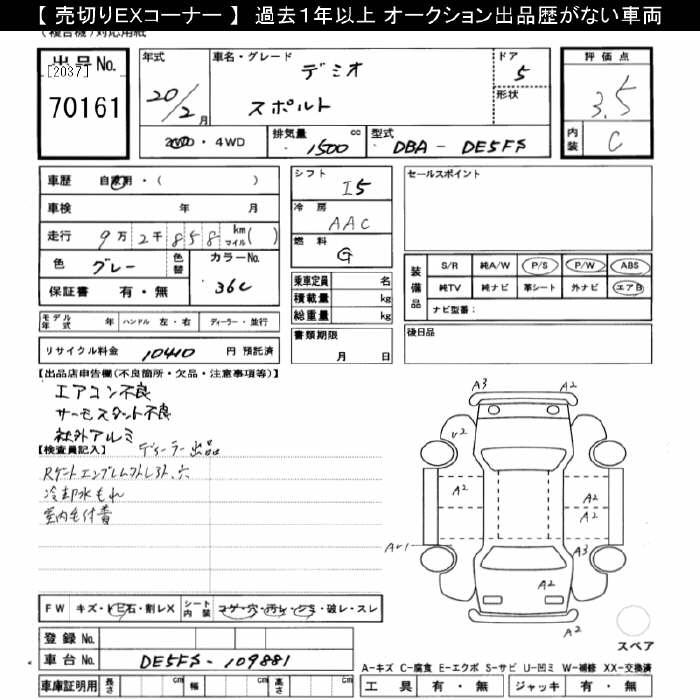 【 売切りEXコーナー 】 過去１年以上 オークション出品歴がない車両
(複合機)対応用紙
出品No.
[2037]
70161
年式
20/2月
車名・グレード
デミオ
スポルト
ドア
5
形状
評価点
3.5
内装
C
2WD・4WD
排気量 1500 cc
型式 DBA - DE5FS
車歴 自家用・( )
車検 年 月
走行 9万2千858 km マイル( )
色 グレー
色替
カラーNo.
36C
保証書 有・無
シフト
I5
冷房
AAC
燃料
G
乗車定員 名
積載量 kg
総重量 kg
書類期限
月 日
セールスポイント
装備品
S/R 純A/W P/S P/W ABS
純TV 純ナビ 革シート 外ナビ エアB
ナビ型番:
後日品
モデル年式 年 ハンドル 左・右 ディーラー・並行
リサイクル料金 10410 円 預託済
【出品店申告欄(不良箇所・欠品・注意事項等)】
エアコン不良
サーモスタット不良
社外アルミ
【検査員記入】
ディーラー出品
冷却水もれ
室内毛付着
A3
A2
A2
A2
A2
A2
A3
A2
A2
スペア
FW キズ・トビ石・割レX
シート内装 コゲ・穴・汚レ・シミ・破レ・スレ
登録No.
車台No. DE5FS-109881
車庫証明用 長さ cm 幅 cm 高さ cm
A-キズ C-腐食 E-エクボ S-サビ U-凹ミ W-補修 XX-交換済
工具 有・無 ジャッキ 有・無